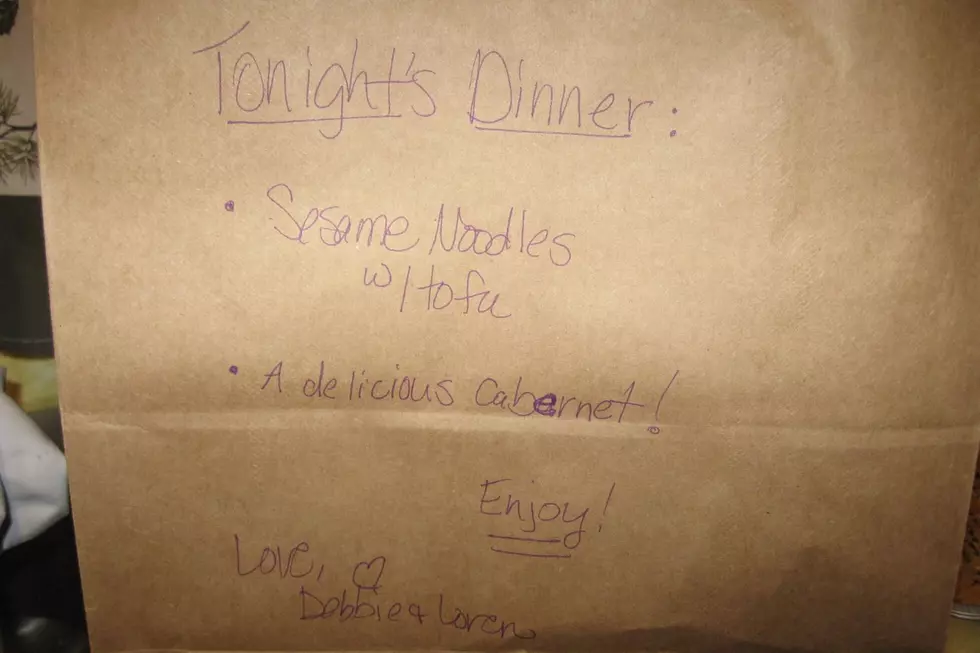 Tonight's Dinner:
• Sesame Noodles
w/tofu
• A delicious Cabernet!
Enjoy!
Love, ♡
Debbie & Loren